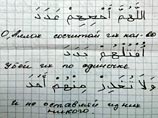 اللَّهُمَّ أَحْصِهِمْ عَدَدَ
О, Аллах сосчитай их кол-во
اُقْتُلْهُمْ بَدَدَ
Убей их по одиночке
وَلَا تُغَادِرْ مِنْهُمْ أَحَدَ
и не оставляй из них
никого